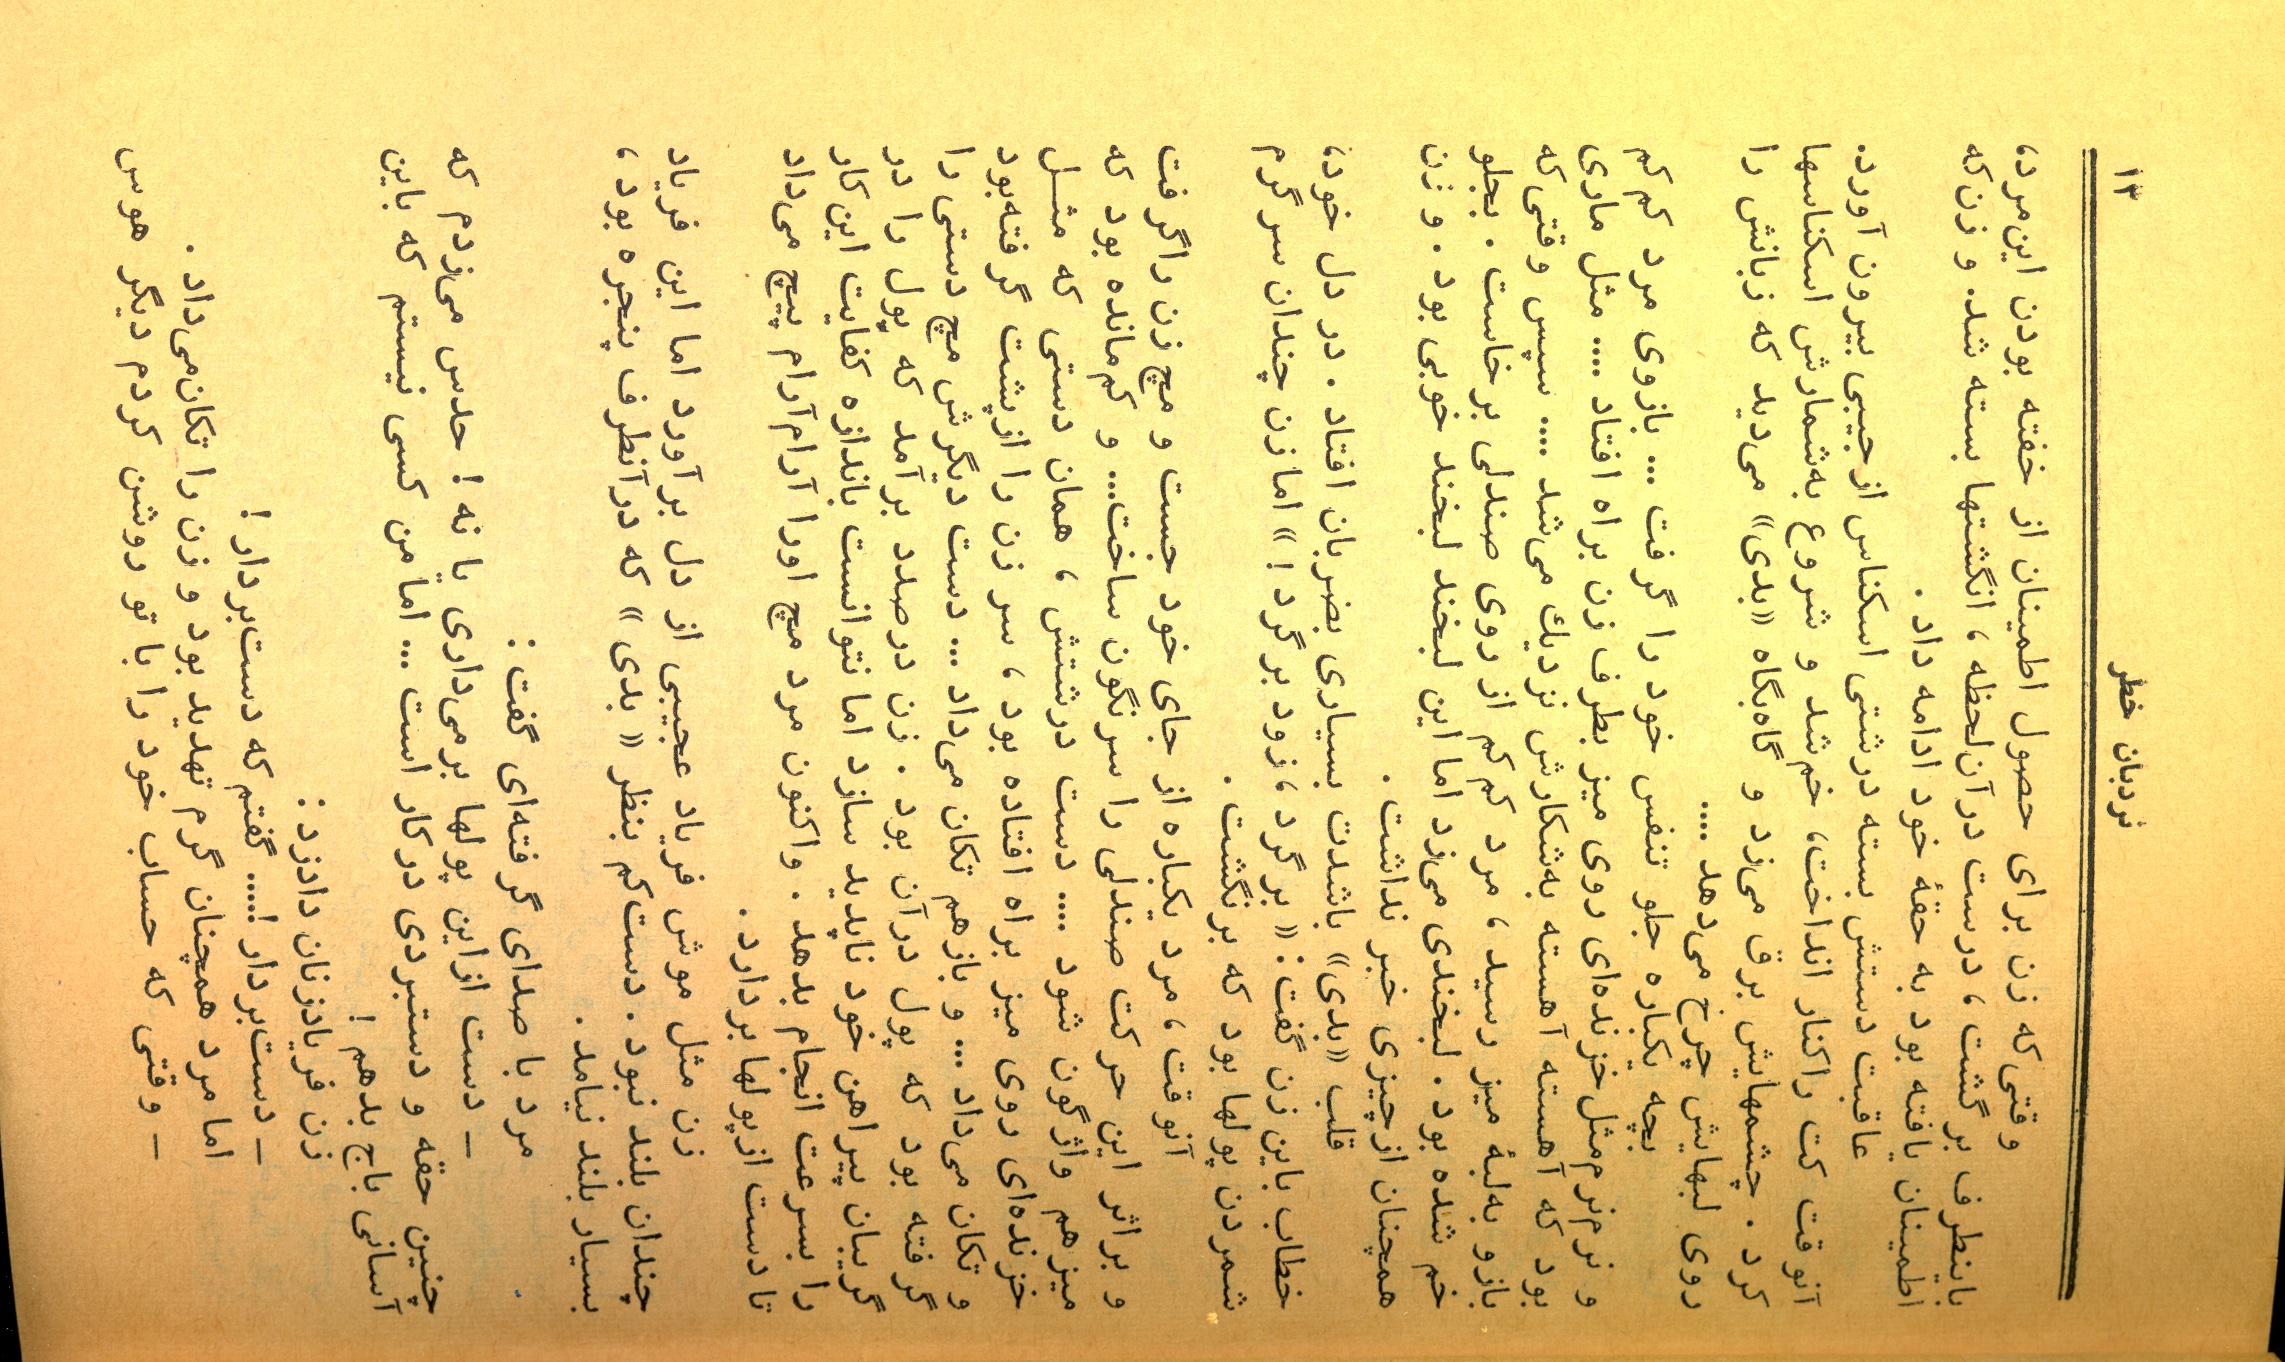 نردبان خطر
۱۳
وقتی که زن برای حصول اطمینان از خفته بودن این‌مرد،
باینطرف برگشت، درست درآن‌لحظه، انگشتها بسته شد. و زن‌که
اطمینان یافته بود به حقهٔ خود ادامه داد.
عاقبت دستش بسته درشتی اسکناس ازجیبی بیرون آورد.
آنوقت کت راکنار انداخت، خم‌شد و شروع به‌شمارش اسکناسها
کرد. چشمهایش برق می‌زد و گاه‌بگاه «بدی» می‌دید که زبانش را
روی لبهایش چرخ می‌دهد ....
بچه یکباره جلو تنفس خود را گرفت ... بازوی مرد کم‌کم
و نرم‌نرم‌مثل‌خزنده‌ای روی میز بطرف زن براه افتاد ... مثل ماری
بود که آهسته آهسته به‌شکارش نزدیك می‌شد .... سپس وقتی‌که
بازو به‌لبهٔ میز رسید، مرد کم‌کم از روی صندلی برخاست. بجلو
خم شده بود. لبخندی می‌زد اما این لبخند لبخند خوبی بود. و زن
همچنان ازچیزی خبر نداشت.
قلب «بدی» باشدت بسیاری بضربان افتاد. در دل خود،
خطاب باین زن گفت: «برگرد، زود برگرد!» امازن چندان سرگرم
شمردن پولها بود که برنگشت.
آنوقت، مرد یکباره از جای خود جست و مچ زن راگرفت
و براثر این حرکت صندلی را سرنگون ساخت... و کم‌مانده بود که
میزهم واژگون شود .... دست درشتش، همان دستی که مثل
خزنده‌ای روی میز براه افتاده بود، سر زن را ازپشت گرفته‌بود
و تکان می‌داد ... و بازهم تکان می‌داد ... دست دیگرش مچ دستی را
گرفته بود که پول درآن بود. زن درصدد برآمد که پول را در
گریبان پیراهن خود ناپدید سازد اما نتوانست باندازه کفایت این‌کار
را بسرعت انجام بدهد. واکنون مرد مچ اورا آرام‌آرام پیچ می‌داد
تا دست ازپولها بردارد.
زن مثل موش فریاد عجیبی از دل برآورد اما این فریاد
چندان بلند نبود. دست‌کم بنظر «بدی» که درآنطرف پنجره بود،
بسیار بلند نیامد.
مرد با صدای گرفته‌ای گفت:
– دست ازاین پولها برمی‌داری یا نه! حدس می‌زدم که
چنین حقه و دستبردی درکار است ... امامن کسی نیستم که باین
آسانی باج بدهم!
زن فریادزنان دادزد:
– دست‌بردار!.... گفتم که دست‌بردار!
اما مرد همچنان گرم تهدید بود و زن را تکان‌می‌داد.
– وقتی که حساب خود را با تو روشن کردم دیگر هوس